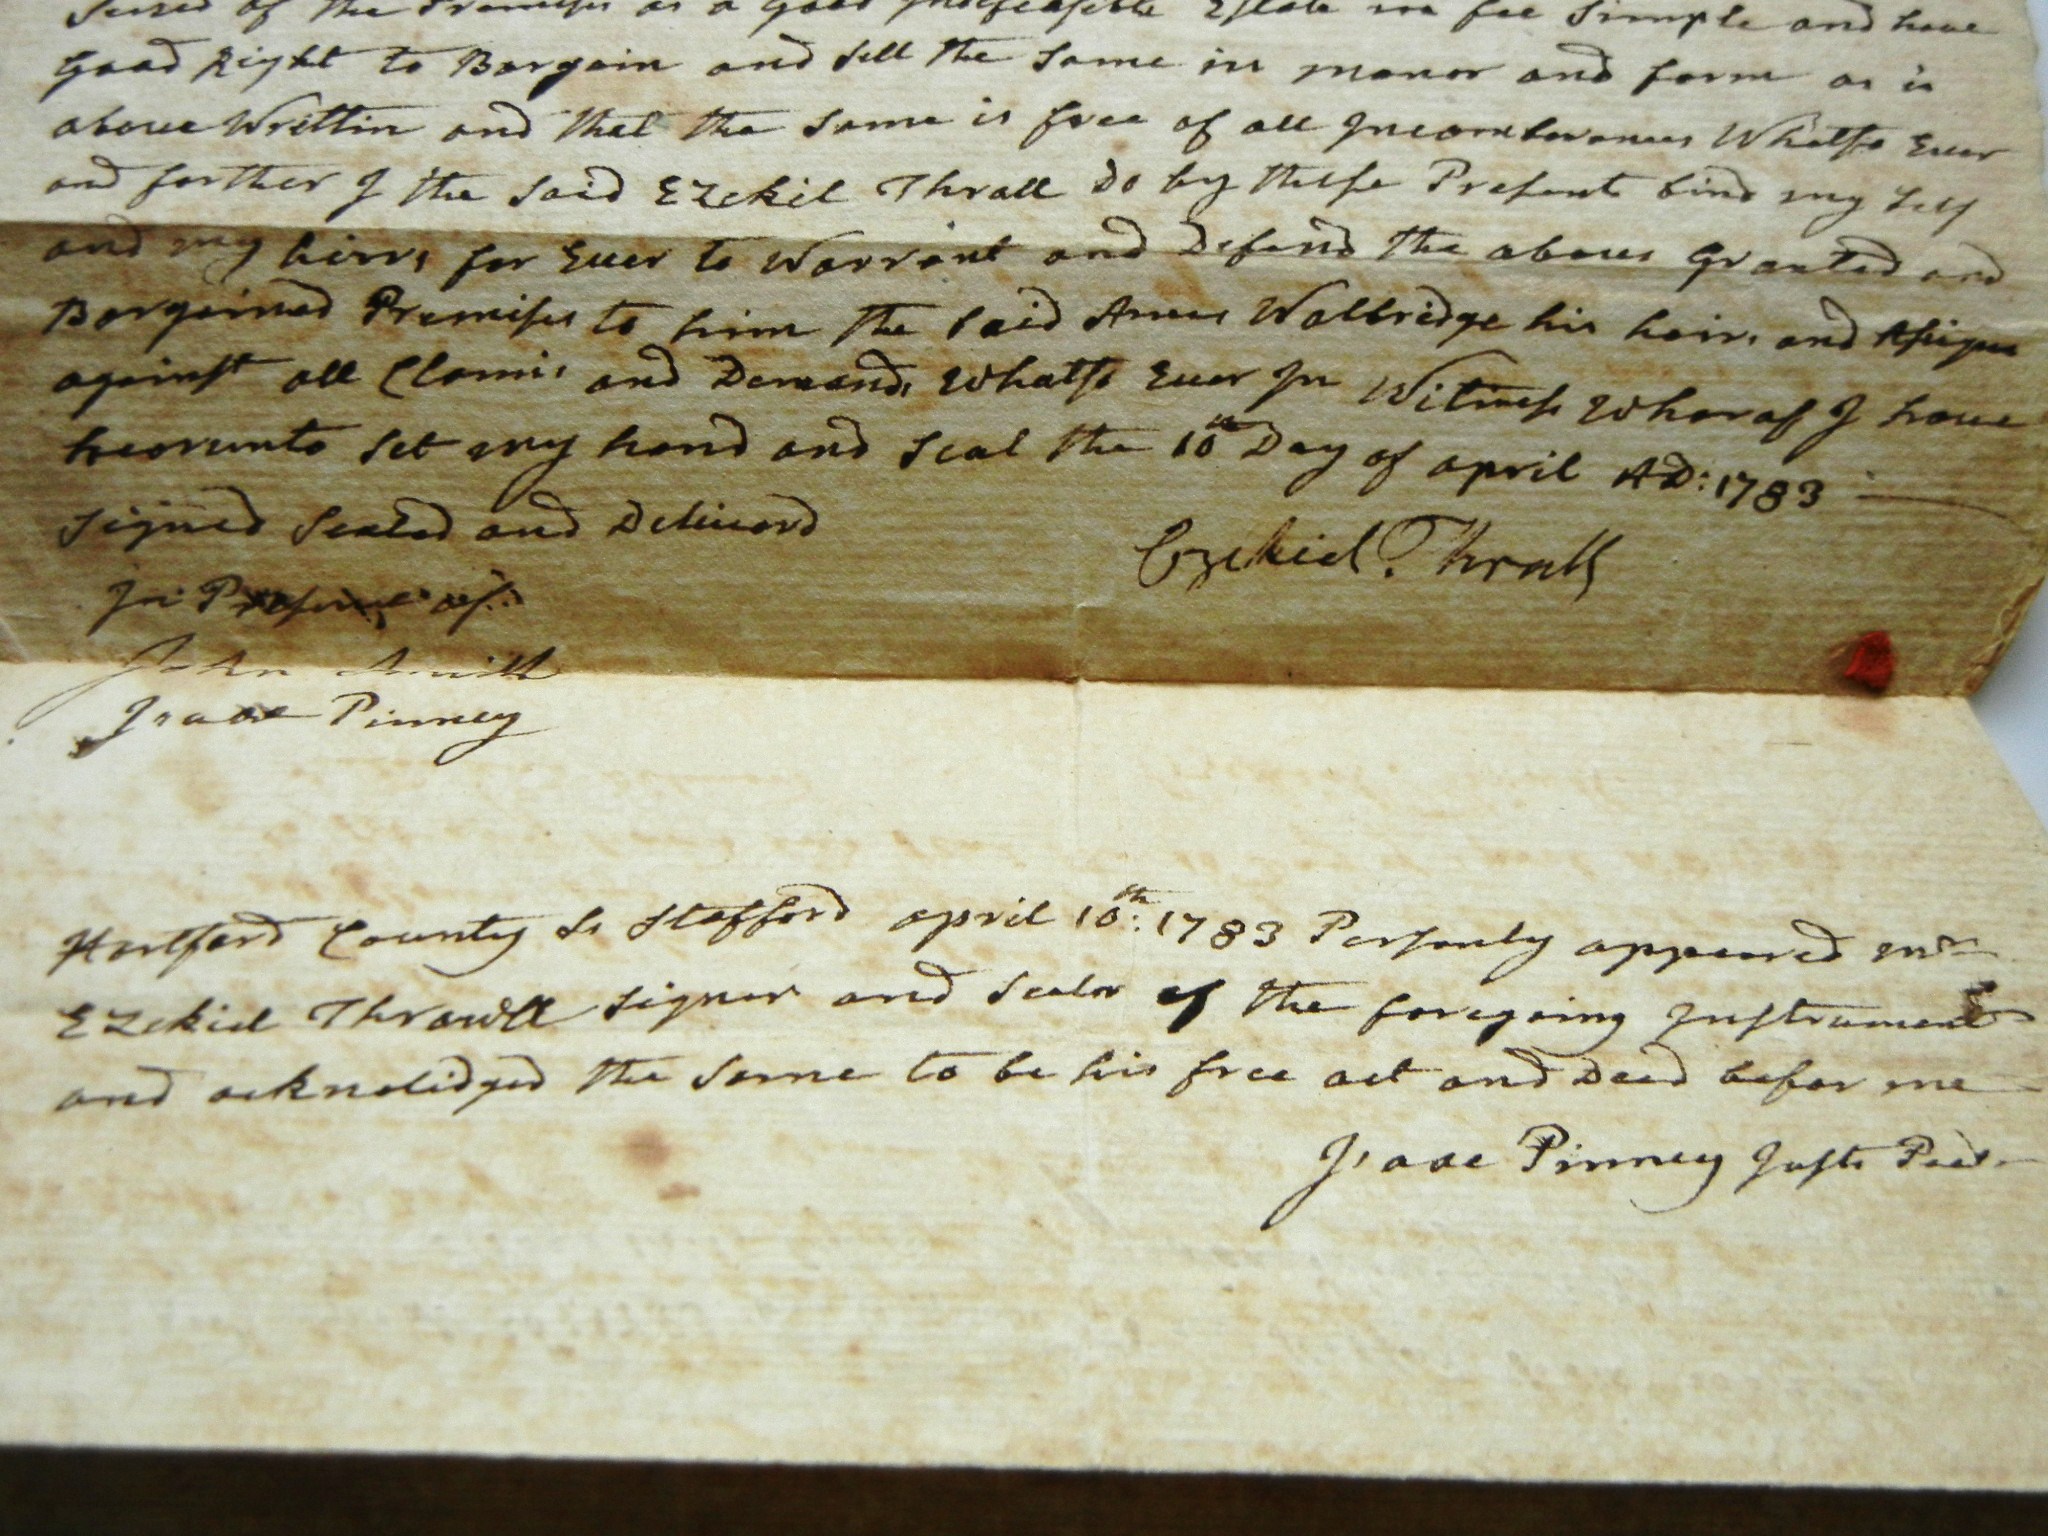 Seized of the Premises as a good Indefeasible Estate in fee Simple and have
Good Right to Bargain and Sell the Same in manor and form as is
above Writtin and that the Same is free of all Incomberances Whatso Ever
and forther I the Said EZekil Thrall Do by these Presents bind my Self
and my heirs for Ever to Warrant and Defend the above Granted and
Bargained Premises to him the Said Amos Walbridge his heirs and Asigns
against all Claims and Demands Whatso Ever In Witness Wharof I have
heorunto Set my hand and Seal the 10th Day of april AD: 1783
Signed Sealed and Deliuord
In Presence of
Ezekiel Thrall
John Smith
Isaac Pinney
Hartford County Ss Stafford april 10th: 1783 Personly appeared mr
EZekiel Thrawll Signer and Sealor of the foregoing Instrument
and acknolidged the Same to be his free act and Deed befor me
Isaac Pinney Justs Peace